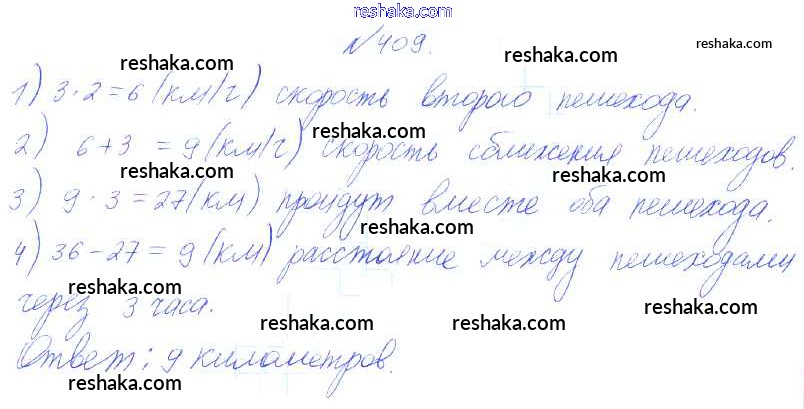 www.reshaka.com
№409.
reshaka.com reshaka.com reshaka.com
1) 3·2=6 (км/ч) скорость второго пешехода.
reshaka.com
2) 6+3=9 (км/ч) скорость сближения пешеходов.
reshaka.com
3) 9·3=27 (км) пройдут вместе оба пешехода.
reshaka.com
4) 36-27=9 (км) расстояние между пешеходами
reshaka.com
через 3 часа.
reshaka.com reshaka.com
Ответ: 9 километров.
reshaka.com reshaka.com